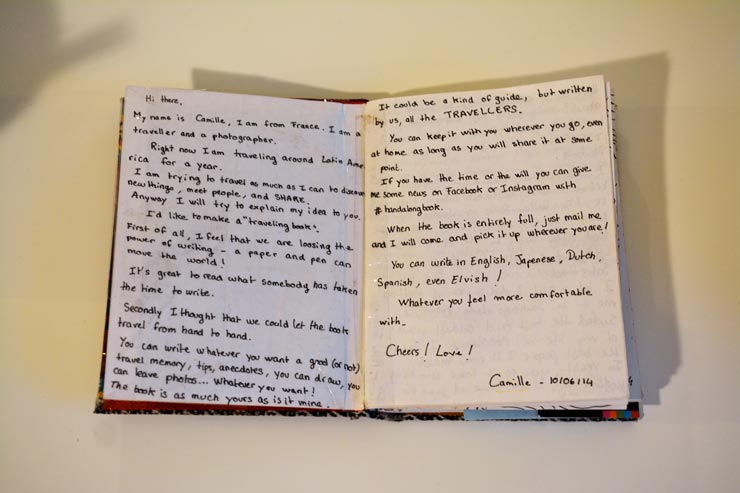 Hi there,
My name is Camille, I am from France. I am a
traveller and a photographer.
Right now I am traveling around Latin Ame
rica for a year.
I am trying to travel as much as I can to discover
new things, meet people, and SHARE.
Anyway I will try to explain my idea to you.
I'd like to make a "traveling book".
First of all, I feel that we are loosing the
power of writing - a paper and pen can
move the world!
It's great to read what somebody has taken
the time to write.
Secondly I thought that we could let the book
travel from hand to hand.
You can write whatever you want a good (or not)
travel memory, tips, anecdotes, you can draw, you
can leave photos... Whatever you want!
The book is as much yours as is it mine.
It could be a kind of guide, but written
by us, all the TRAVELLERS.
You can keep it with you wherever you go, even
at home as long as you will share it at some
point.
If you have the time or the will you can give
me some news on Facebook or Instagram with
#handalongbook.
When the book is entirely full, just mail me
and I will come and pick it up wherever you are!
You can write in English, Japenese, Dutch,
Spanish, even Elvish!
Whatever you feel more comfortable
with_
Cheers! Love!
Camille - 10/06/14